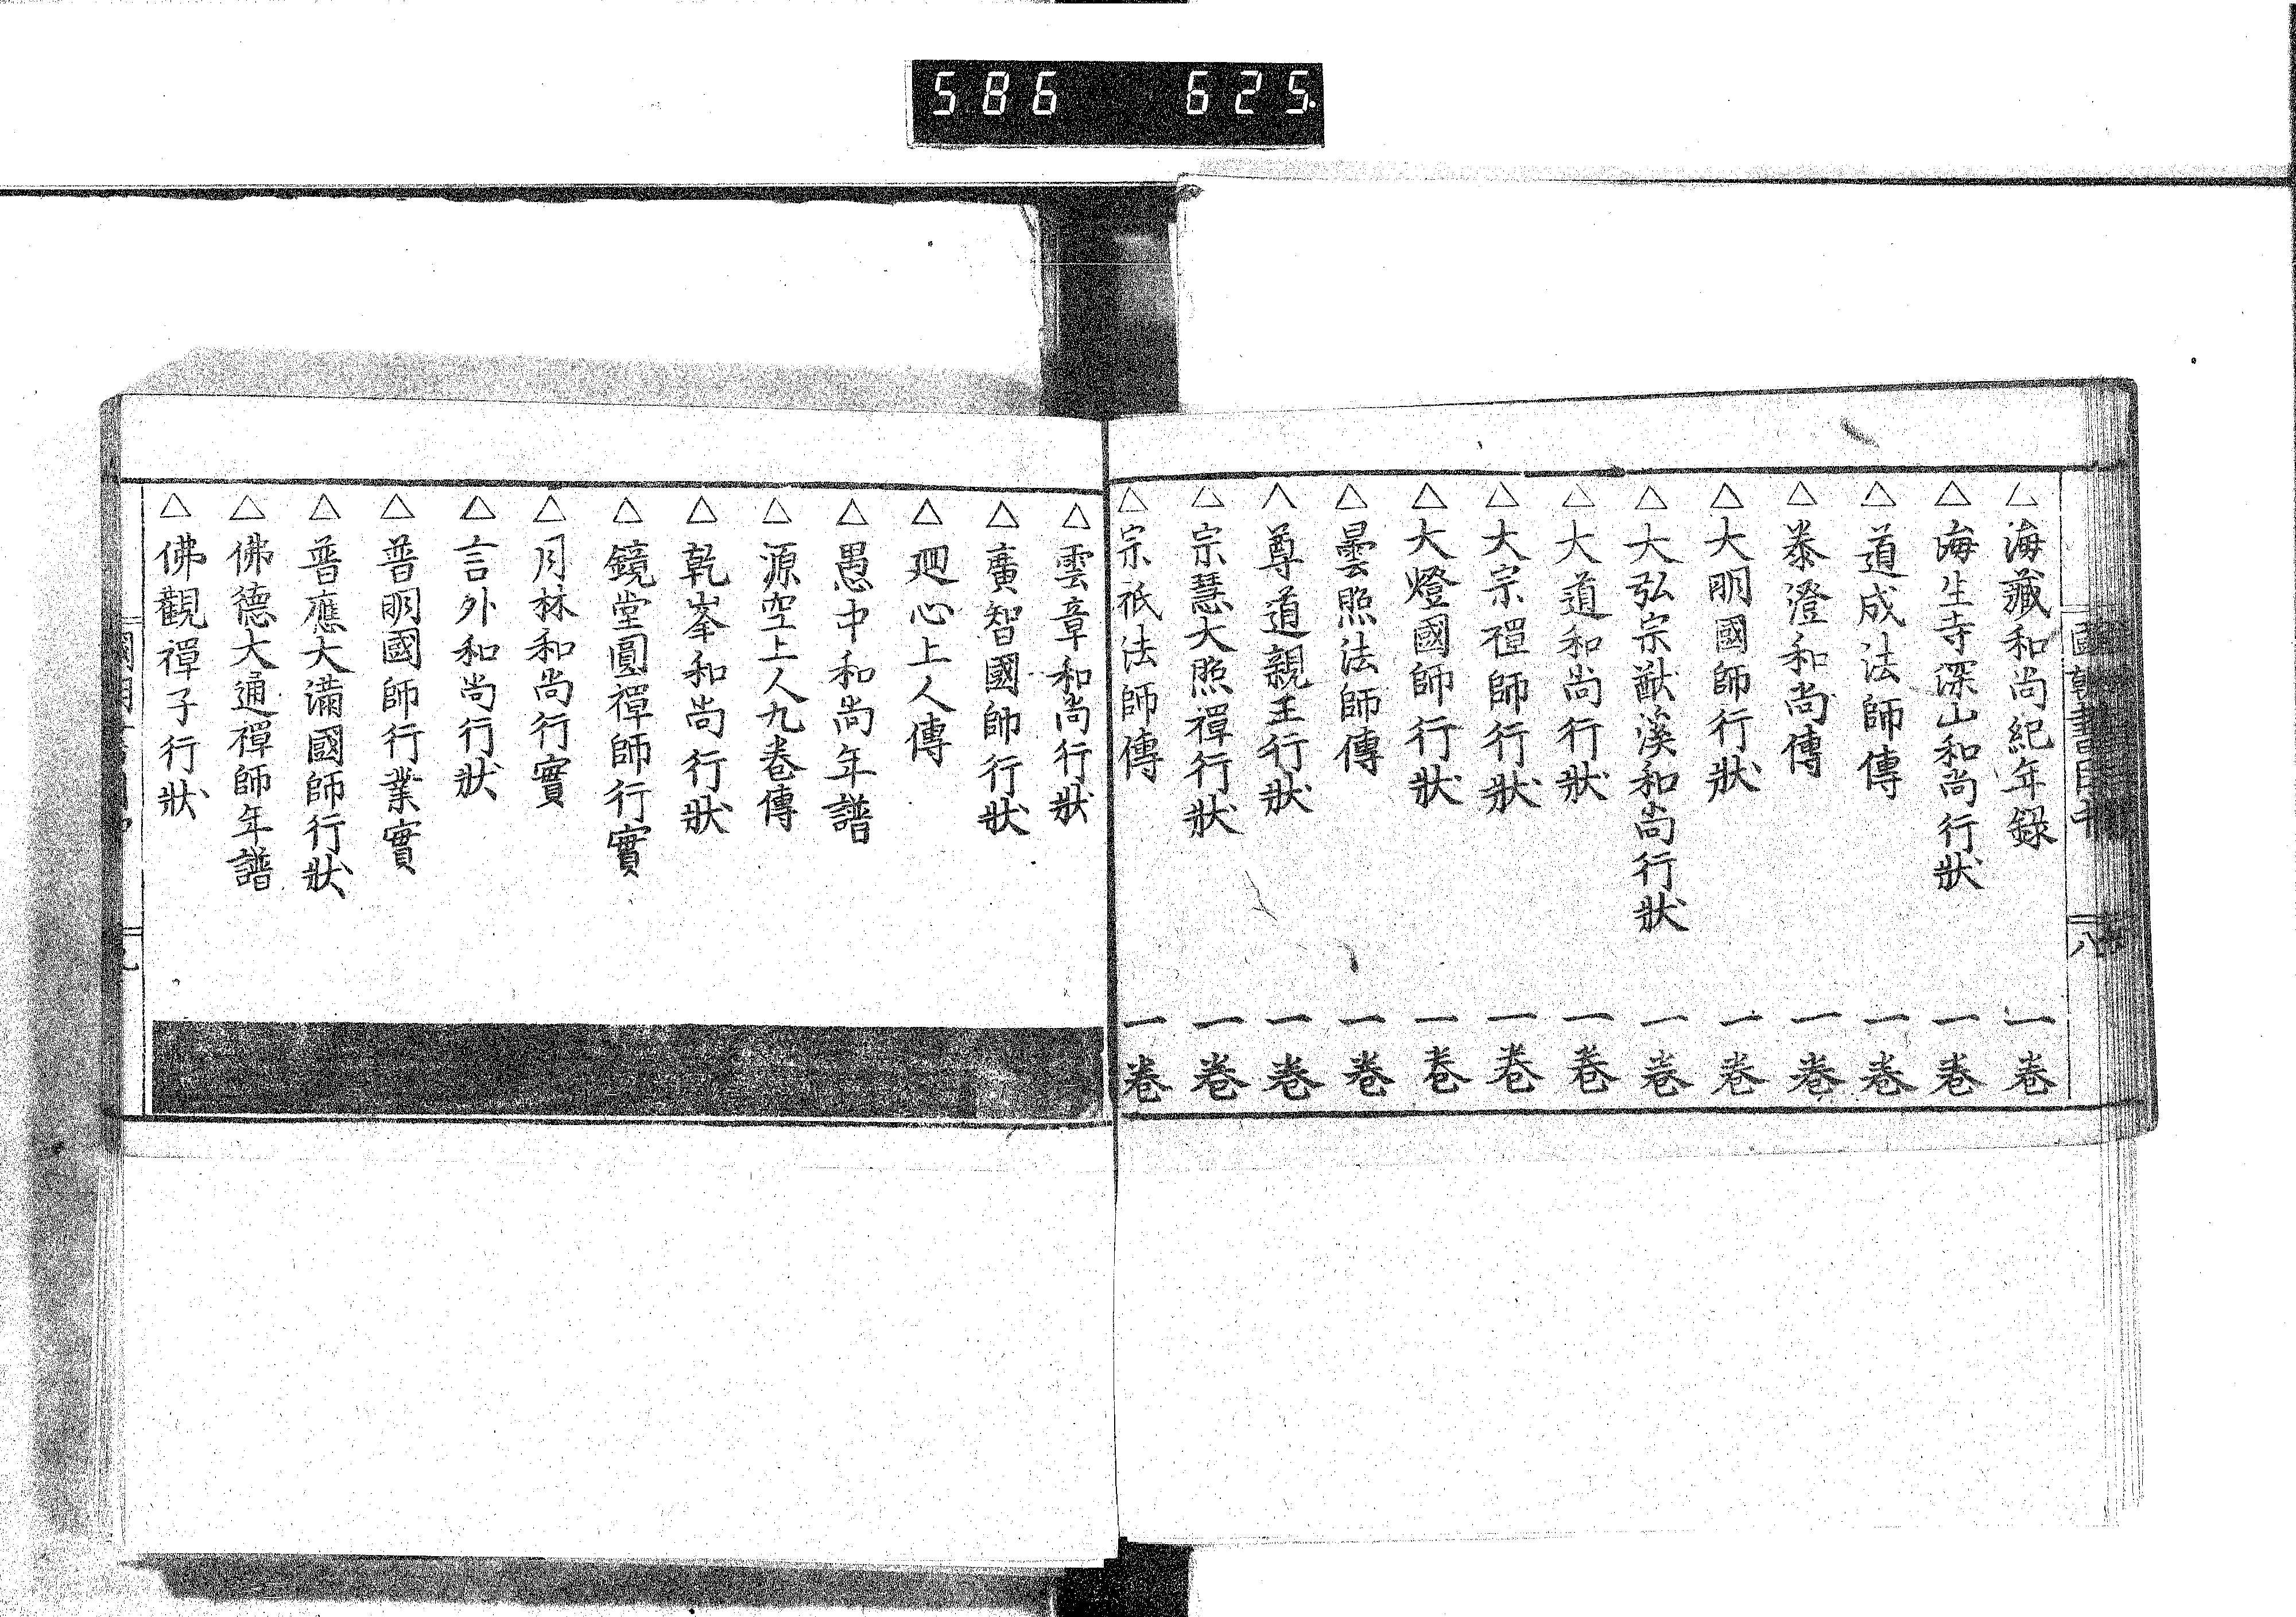 586 625.
△海藏和尚紀年録 一卷
△海生寺深山和尚行狀 一卷
△道成法師傳 一卷
△泰澄和尚傳 一卷
△大明國師行狀 一卷
△大弘宗猷溪和尚行狀 一卷
△大道和尚行狀 一卷
△大宗禪師行狀 一卷
△大燈國師行狀 一卷
△曇照法師傳 一卷
△尊道親王行狀 一卷
△宗慧大照禪行狀 一卷
△宗祇法師傳 一卷
△雲章和尚行狀
△廣智國師行狀
△廻心上人傳
△愚中和尚年譜
△源空上人九卷傳
△乾峯和尚行狀
△鏡堂圓禪師行實
△月林和尚行實
△言外和尚行狀
△普明國師行業實
△普應大滿國師行狀
△佛德大通禪師年譜
△佛觀禪子行狀